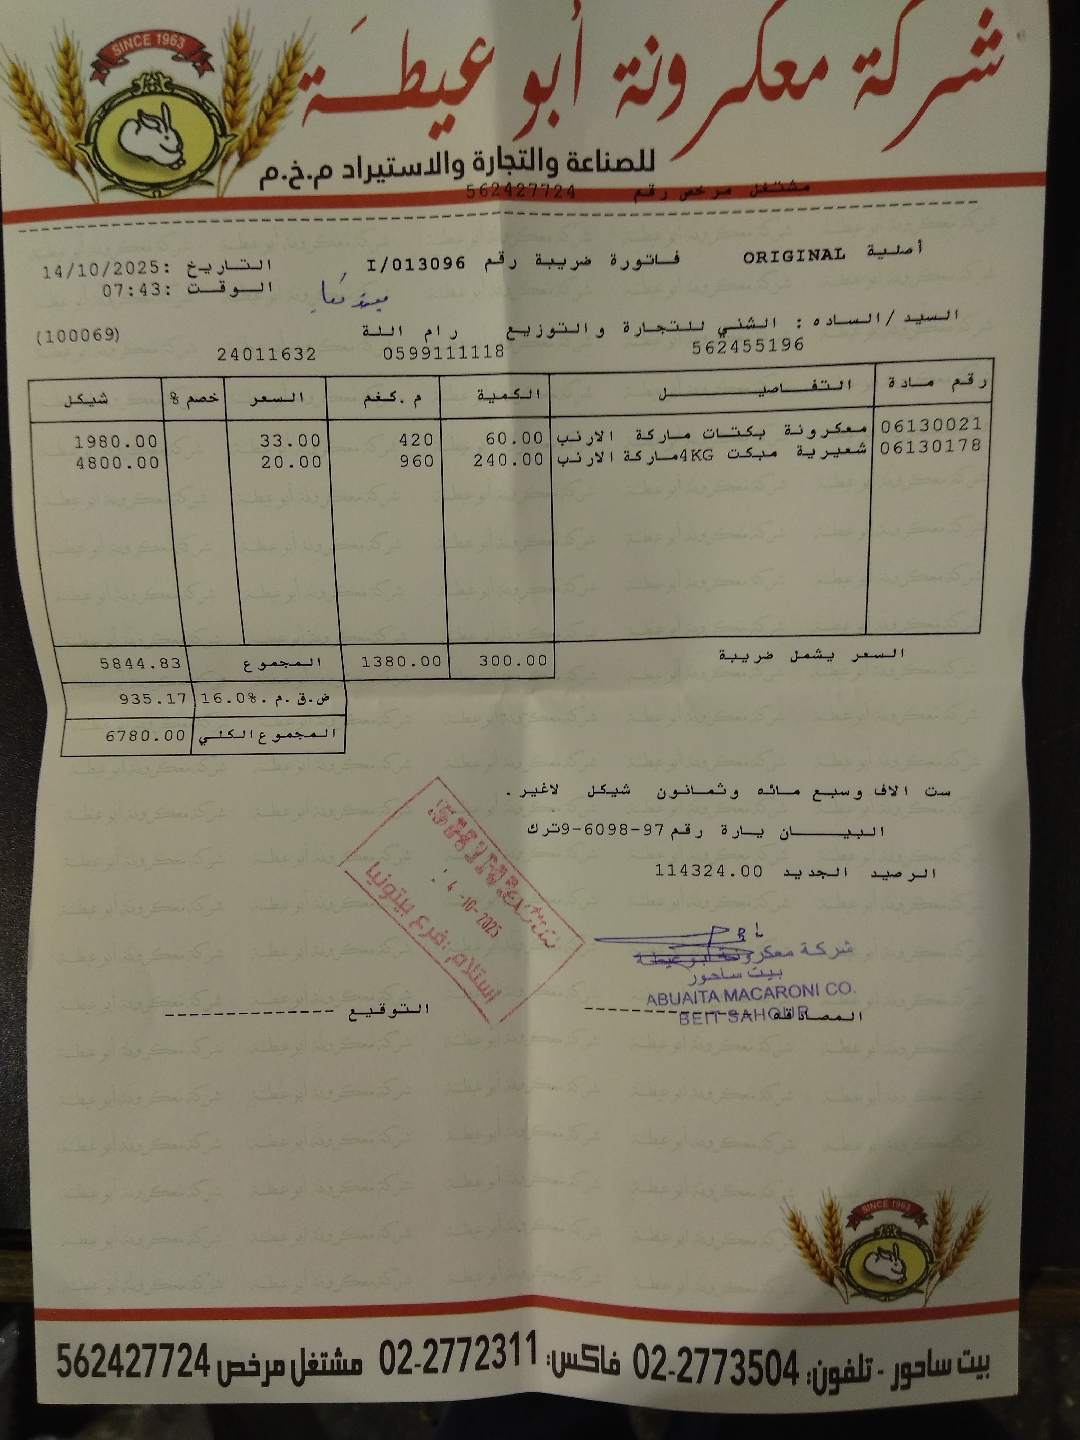 SINCE 1963
شركة معكرونة أبو عيطة
للصناعة والتجارة والاستيراد م.خ.م
مشتغل مرخص رقم 562427724
أصلية ORIGINAL فاتورة ضريبة رقم I/013096 التاريخ :14/10/2025
الوقت :07:43
السيد/الساده : الشني للتجارة والتوزيع رام اللة (100069)
562455196 0599111118 24011632
رقم مادة التفاصيل الكمية م.كغم السعر خصم % شيكل
06130021 معكرونة بكتات ماركة الارنب 60.00 420 33.00 1980.00
06130178 شعيرية مبكت 4KG ماركة الارنب 240.00 960 20.00 4800.00
السعر يشمل ضريبة 300.00 1380.00 المجموع 5844.83
ض.ق.م .16.0% 935.17
المجموع الكلي 6780.00
ست الاف وسبع مائه وثمانون شيكل لاغير .
البيان يارة رقم 97-6098-9ترك
الرصيد الجديد 114324.00
-10-2025
استلام :فرع بيتونيا
شركة معكرونة أبو عيطة
بيت ساحور
ABUAITA MACARONI CO.
BEIT SAHOUR
المصادقة التوقيع
SINCE 1963
بيت ساحور - تلفون: 02-2773504 فاكس: 02-2772311 مشتغل مرخص 562427724